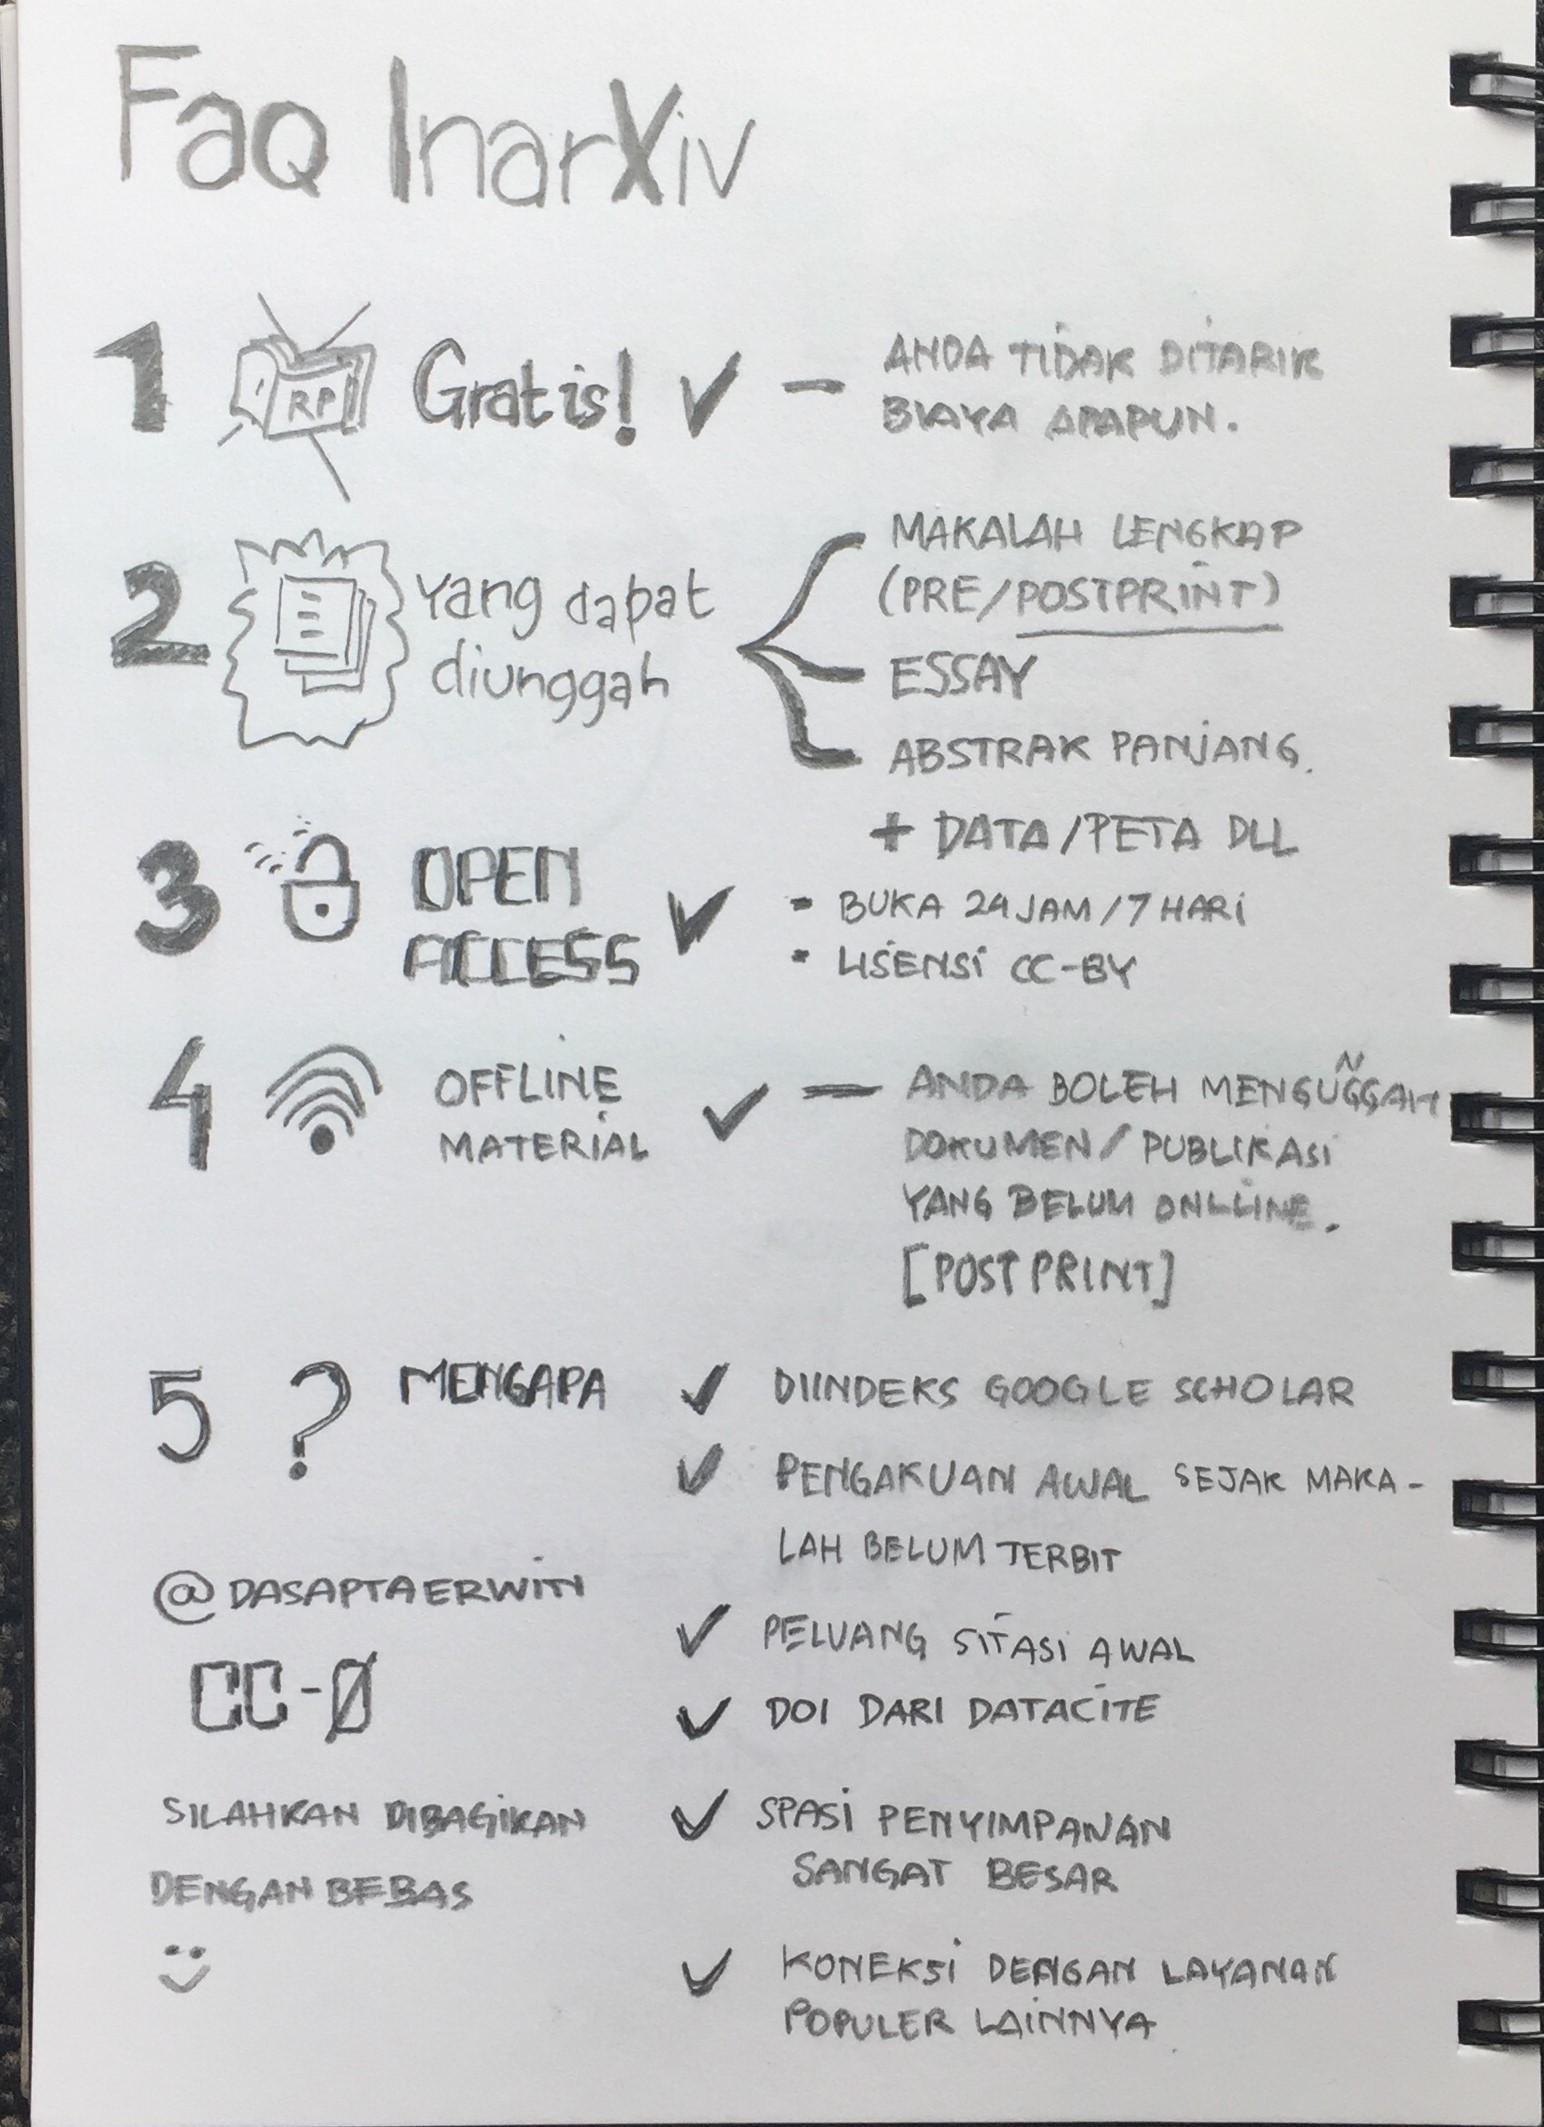 Faq InarXiv
1 RP Gratis! ✓ - ANDA TIDAK DITARIK
BIAYA APAPUN.
2 Yang dapat
diunggah
MAKALAH LENGKAP
(PRE/POSTPRINT)
ESSAY
ABSTRAK PANJANG.
+ DATA/PETA DLL
3 OPEN
ACCESS ✓
- BUKA 24 JAM/7 HARI
• LISENSI CC-BY
4 OFFLINE
MATERIAL ✓ -
ANDA BOLEH MENGUNGGAH
DOKUMEN/PUBLIKASI
YANG BELUM ONLLINE.
[POST PRINT]
5 ? MENGAPA
✓ DIINDEKS GOOGLE SCHOLAR
✓ PENGAKUAN AWAL SEJAK MAKA-
LAH BELUM TERBIT
✓ PELUANG SITASI AWAL
✓ DOI DARI DATACITE
✓ SPASI PENYIMPANAN
SANGAT BESAR
✓ KONEKSI DENGAN LAYANAN
POPULER LAINNYA
@DASAPTAERWIN
CC-0
SILAHKAN DIBAGIKAN
DENGAN BEBAS